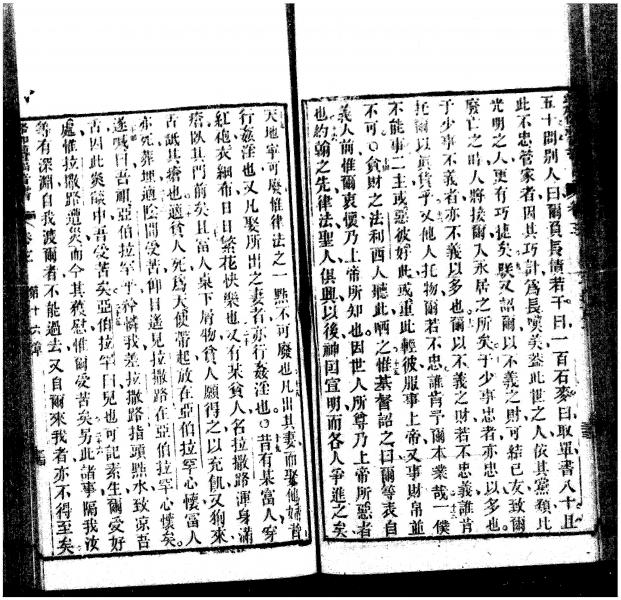 五十問別人曰爾負長債若干曰一百石麥曰取單書八十且
此不忠管家者因其巧計為長嘆美葢此世之人依其黨類比
光明之人更有巧捷矣朕又詔爾以不義之財可結已友致爾
廢亡之時人將接爾入永居之所矣于少事忠者亦忠以多也
于少事不義者亦不義以多也爾以不義之財若不忠義誰肯
托爾以眞貨乎又他人托物爾若不忠誰肯予爾本業哉一僕
不能事二主或惡彼好此或重此輕彼服事上帝又事財帛並
不可○貪財之法利西人聽此哂之惟基督詔之曰爾等衷自
義人前惟爾衷懷乃上帝所知也因世人所尊乃上帝所惡者
也約翰之先律法聖人俱興以後神囘宣明而各人爭進之矣
天地寧可廢惟律法之一點不可廢也凡出其妻而娶他婦者
行姦淫也又凡娶所出之妻者亦行姦淫也○昔有某富人穿
紅袍衣細布日日繁花快樂也又有某貧人名拉撒路渾身滿
瘡臥其門前矣且富人桌下屑物貧人願得之以充飢又狗來
舌舐其瘡也適貧人死爲天使帶起放在亞伯拉罕心懷富人
亦死葬埋適陰間受苦仰目遙見拉撒路在亞伯拉罕心懷矣
遂喊曰吾祖亞伯拉罕乎矜憐我差拉撒路指頭點水致凉吾
舌因此炎燄中吾受苦矣亞伯拉罕曰兒也可記素生爾受好
處惟拉撒路遭災而今其獲慰惟爾受苦矣另此諸事隔我汝
等有深淵自我渡爾者不能過去又自爾來我者亦不得至矣
第十六章